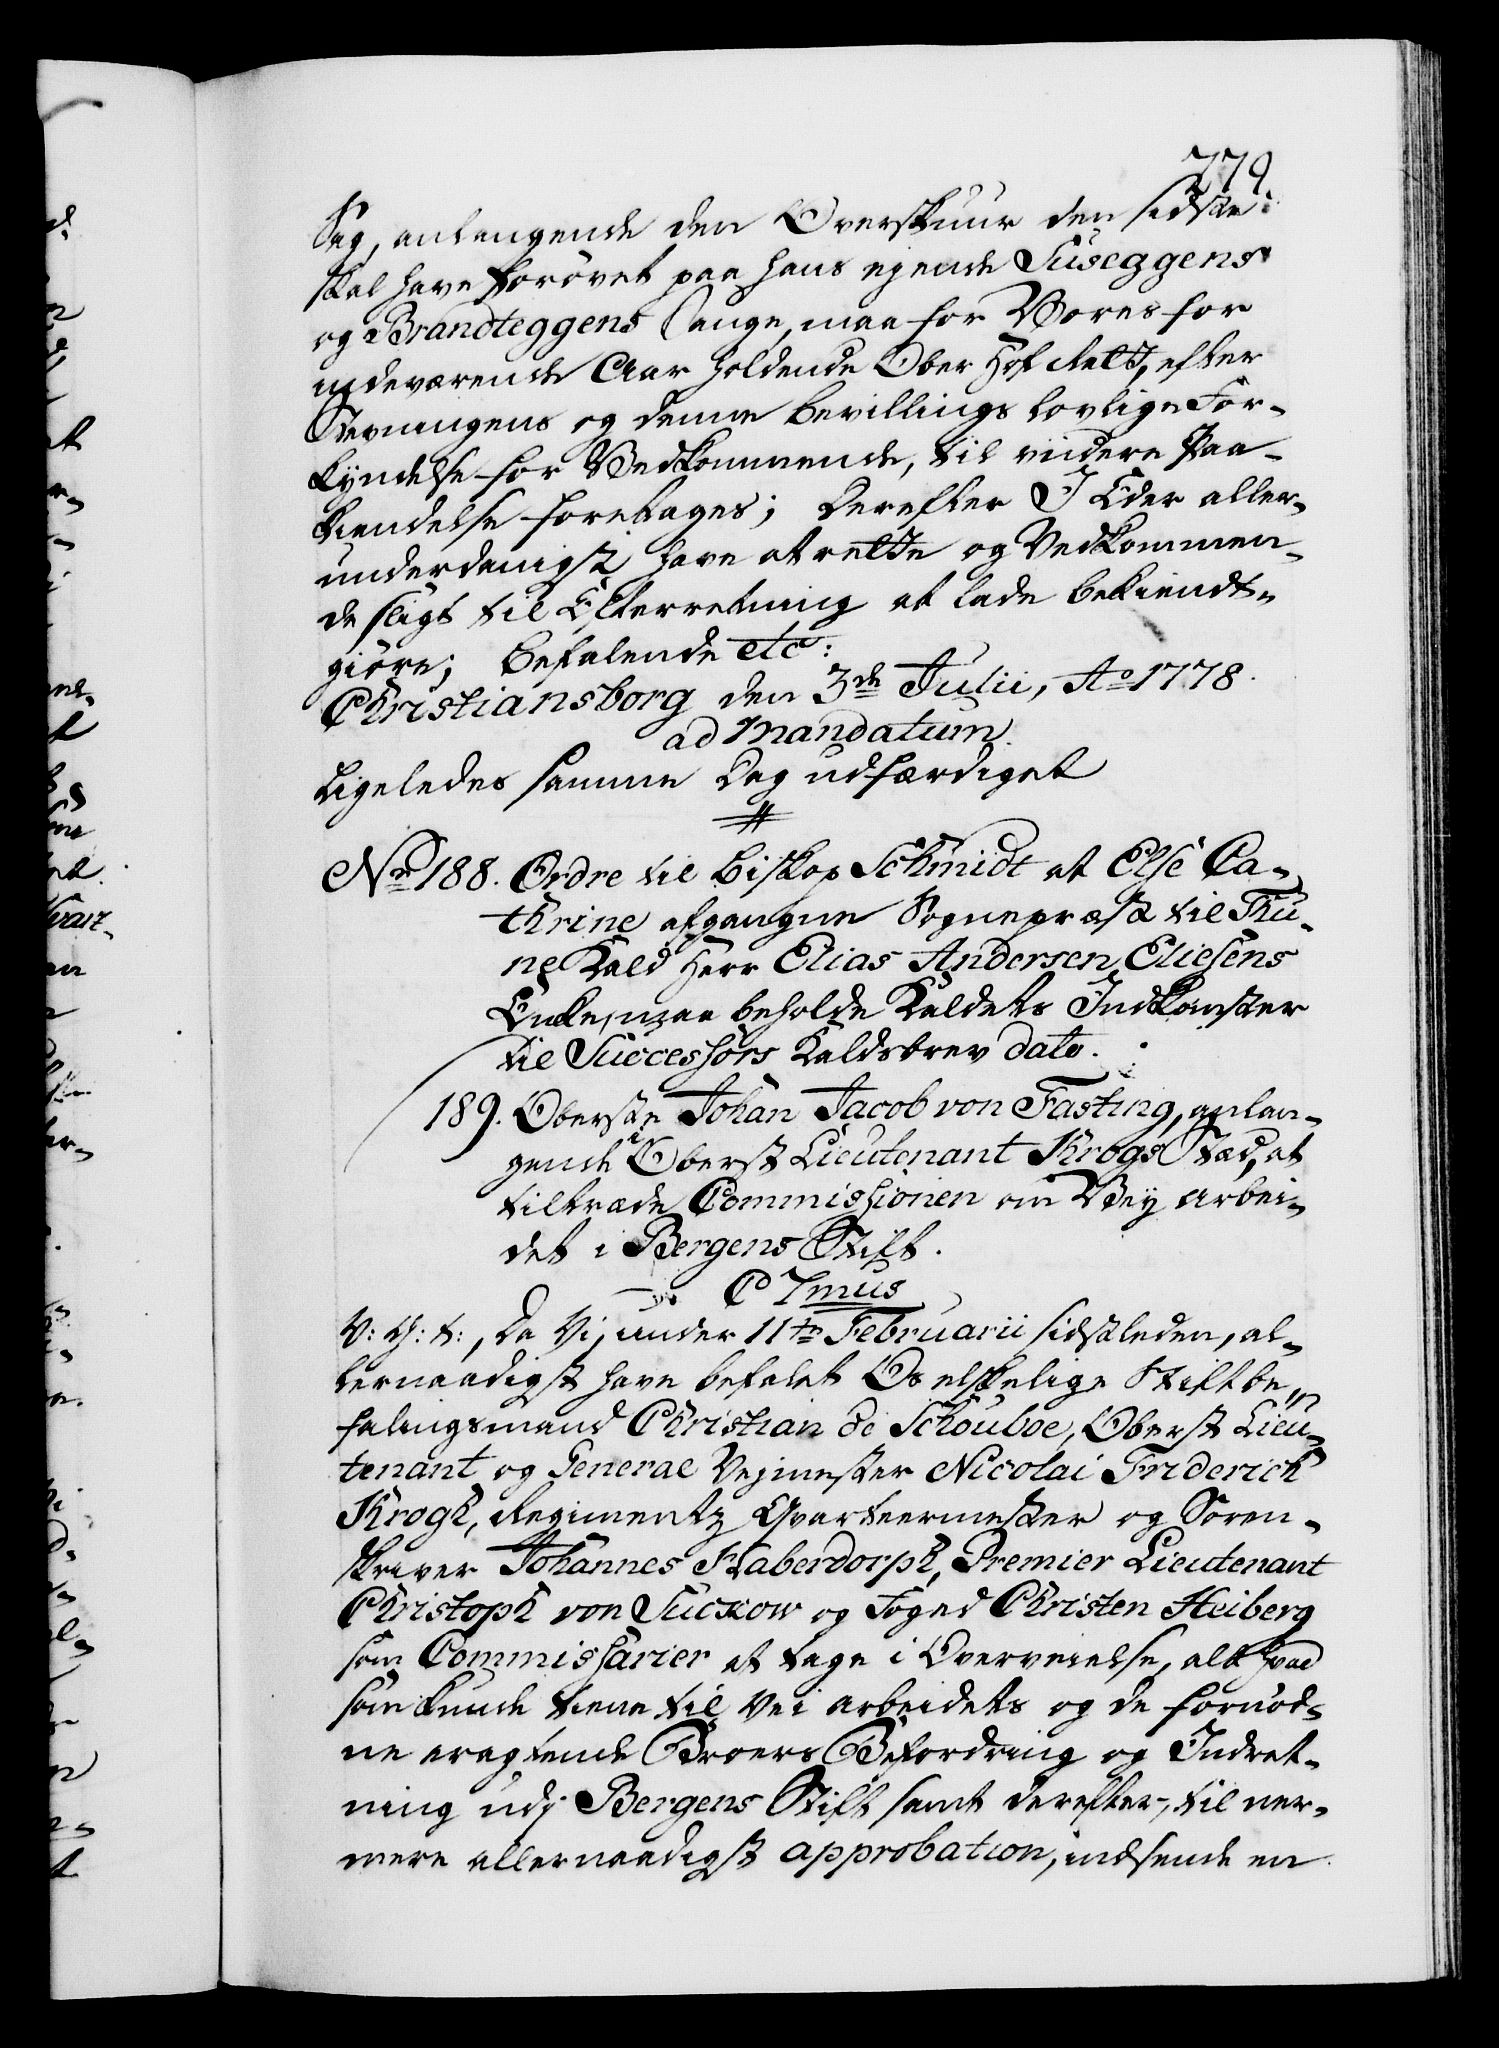 279
Sag, anlangende den Overskuur den sidste
skal have forövet paa hans ejende Suseggens
og Brandteggens Sauge, maa for Vores for
indeværende Aar holdende Ober Hof Rett, efter
Stevningens og denne Bevillings lovlige For-
kyndelse for Vedkommende, til videre Paa-
kiendelse foretages; Derefter I Eder aller-
underdanigst have at rette og Vedkommen-
de sligt til Efterretning at lade bekiendt-
giöre; Befalende etc:
Christiansborg den 3de Julii, Ao 1778.
ad Mandatum.
Ligeledes samme Dag udfærdiget
No 188. Ordre til Biskop Schmidt at Else Ca-
thrine afgangne Sognepræst til Thu-
ne Kald Herr Elias Andersen Eliesens
Encke, maa beholde Kaldets Indkomster
til Successors Kaldsbrev dato.
189. Oberste Johan Jacob von Fasting, anlan-
gende i Oberst Lieutenant Krogs Sted, at
tiltræde Commissionen om Vey arbei-
det i Bergens Stift.
C 7mus
V: G: t:, Da Vi, under 11te Februarii sidstleden, al-
lernaadigst have befalet Os elskelige Stiftbe-
falingsmand Christian de Schouboe, Oberst Lieu-
tenant og General Vejmester Nicolai Friderich
Krogh, Regimentz Qvarteermester og Soren-
skriver Johannes Haberdorph, Premier Lieutenant
Christoph von Suckow og Foged Christen Heiberg
som Commissarier at tage i Overveielse, alt hvad
som kunde tiene til Vei arbeidets og de fornöd-
ne eragtende Broers Befordring og Indret-
ning udj Bergens Stift samt derefter, til ner-
mere allernaadigst approbation, indsende en